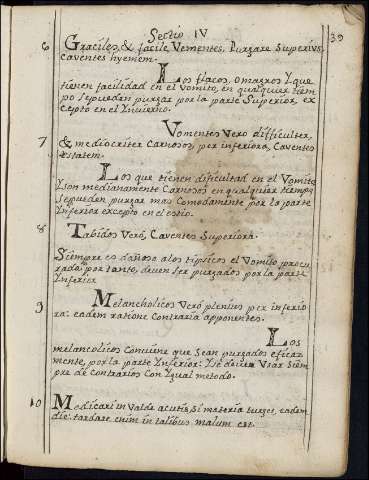 Sectio IV
39
6 Graciles, & facile Vementes. Purgare Superius,
caventes hyemem.
Los flacos, o magros Y que
tienen facilidad en el Vomito, en qualquier tiem
po sepueden purgar por la parte Superior, ex
cepto en el Ynvierno.
7 Vomentes Vero difficulter,
& mediocriter Carnosos, per inferiora, Caventes
estatem.
Los que tienen dificultad en el Vomito
Y son medianamente Carnosos en qualquier tiempo
sepueden purgar mas Comodamente por la parte
Ynferior excepto en el estio.
8 Tabidos Veró, Caventes Superiora.
Siempre es dañoso alos tipsicos el Vomito procu
rado; por tanto, deven ser purgados por la parte
Ynferior
9 Melancholicos Veró plenius per inferio
ra: eadem ratione Contraria apponentes.
Los
melancolicos Conviene que sean purgados eficaz
mente, por la parte Ynferior: Y se deve Usar Siem
pre de Contrarios Con Ygual metodo.
10 Medicari in Valde acutis, Si materia turget, eadem
die: tardare enim in talibus malum est.